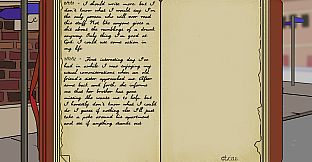 - I should write more but I
don't know what I would say. I'm
the only person who will ever read
this stuff. Not like anyone gives a
shit about the ramblings of a drunk
anyway. Only thing I'm good at
God. I could use some action in
my life.
- First interesting day I've
had in awhile. I was enjoying my
usual considerations when an old
friend's sister approached me. After
some back and forth, she informs
me that her brother has gone
missing. She wants me to help, but
I honestly don't know what I could
do. I guess if nothing else I'll just
take a poke around his apartment
and see if anything stands out.
close